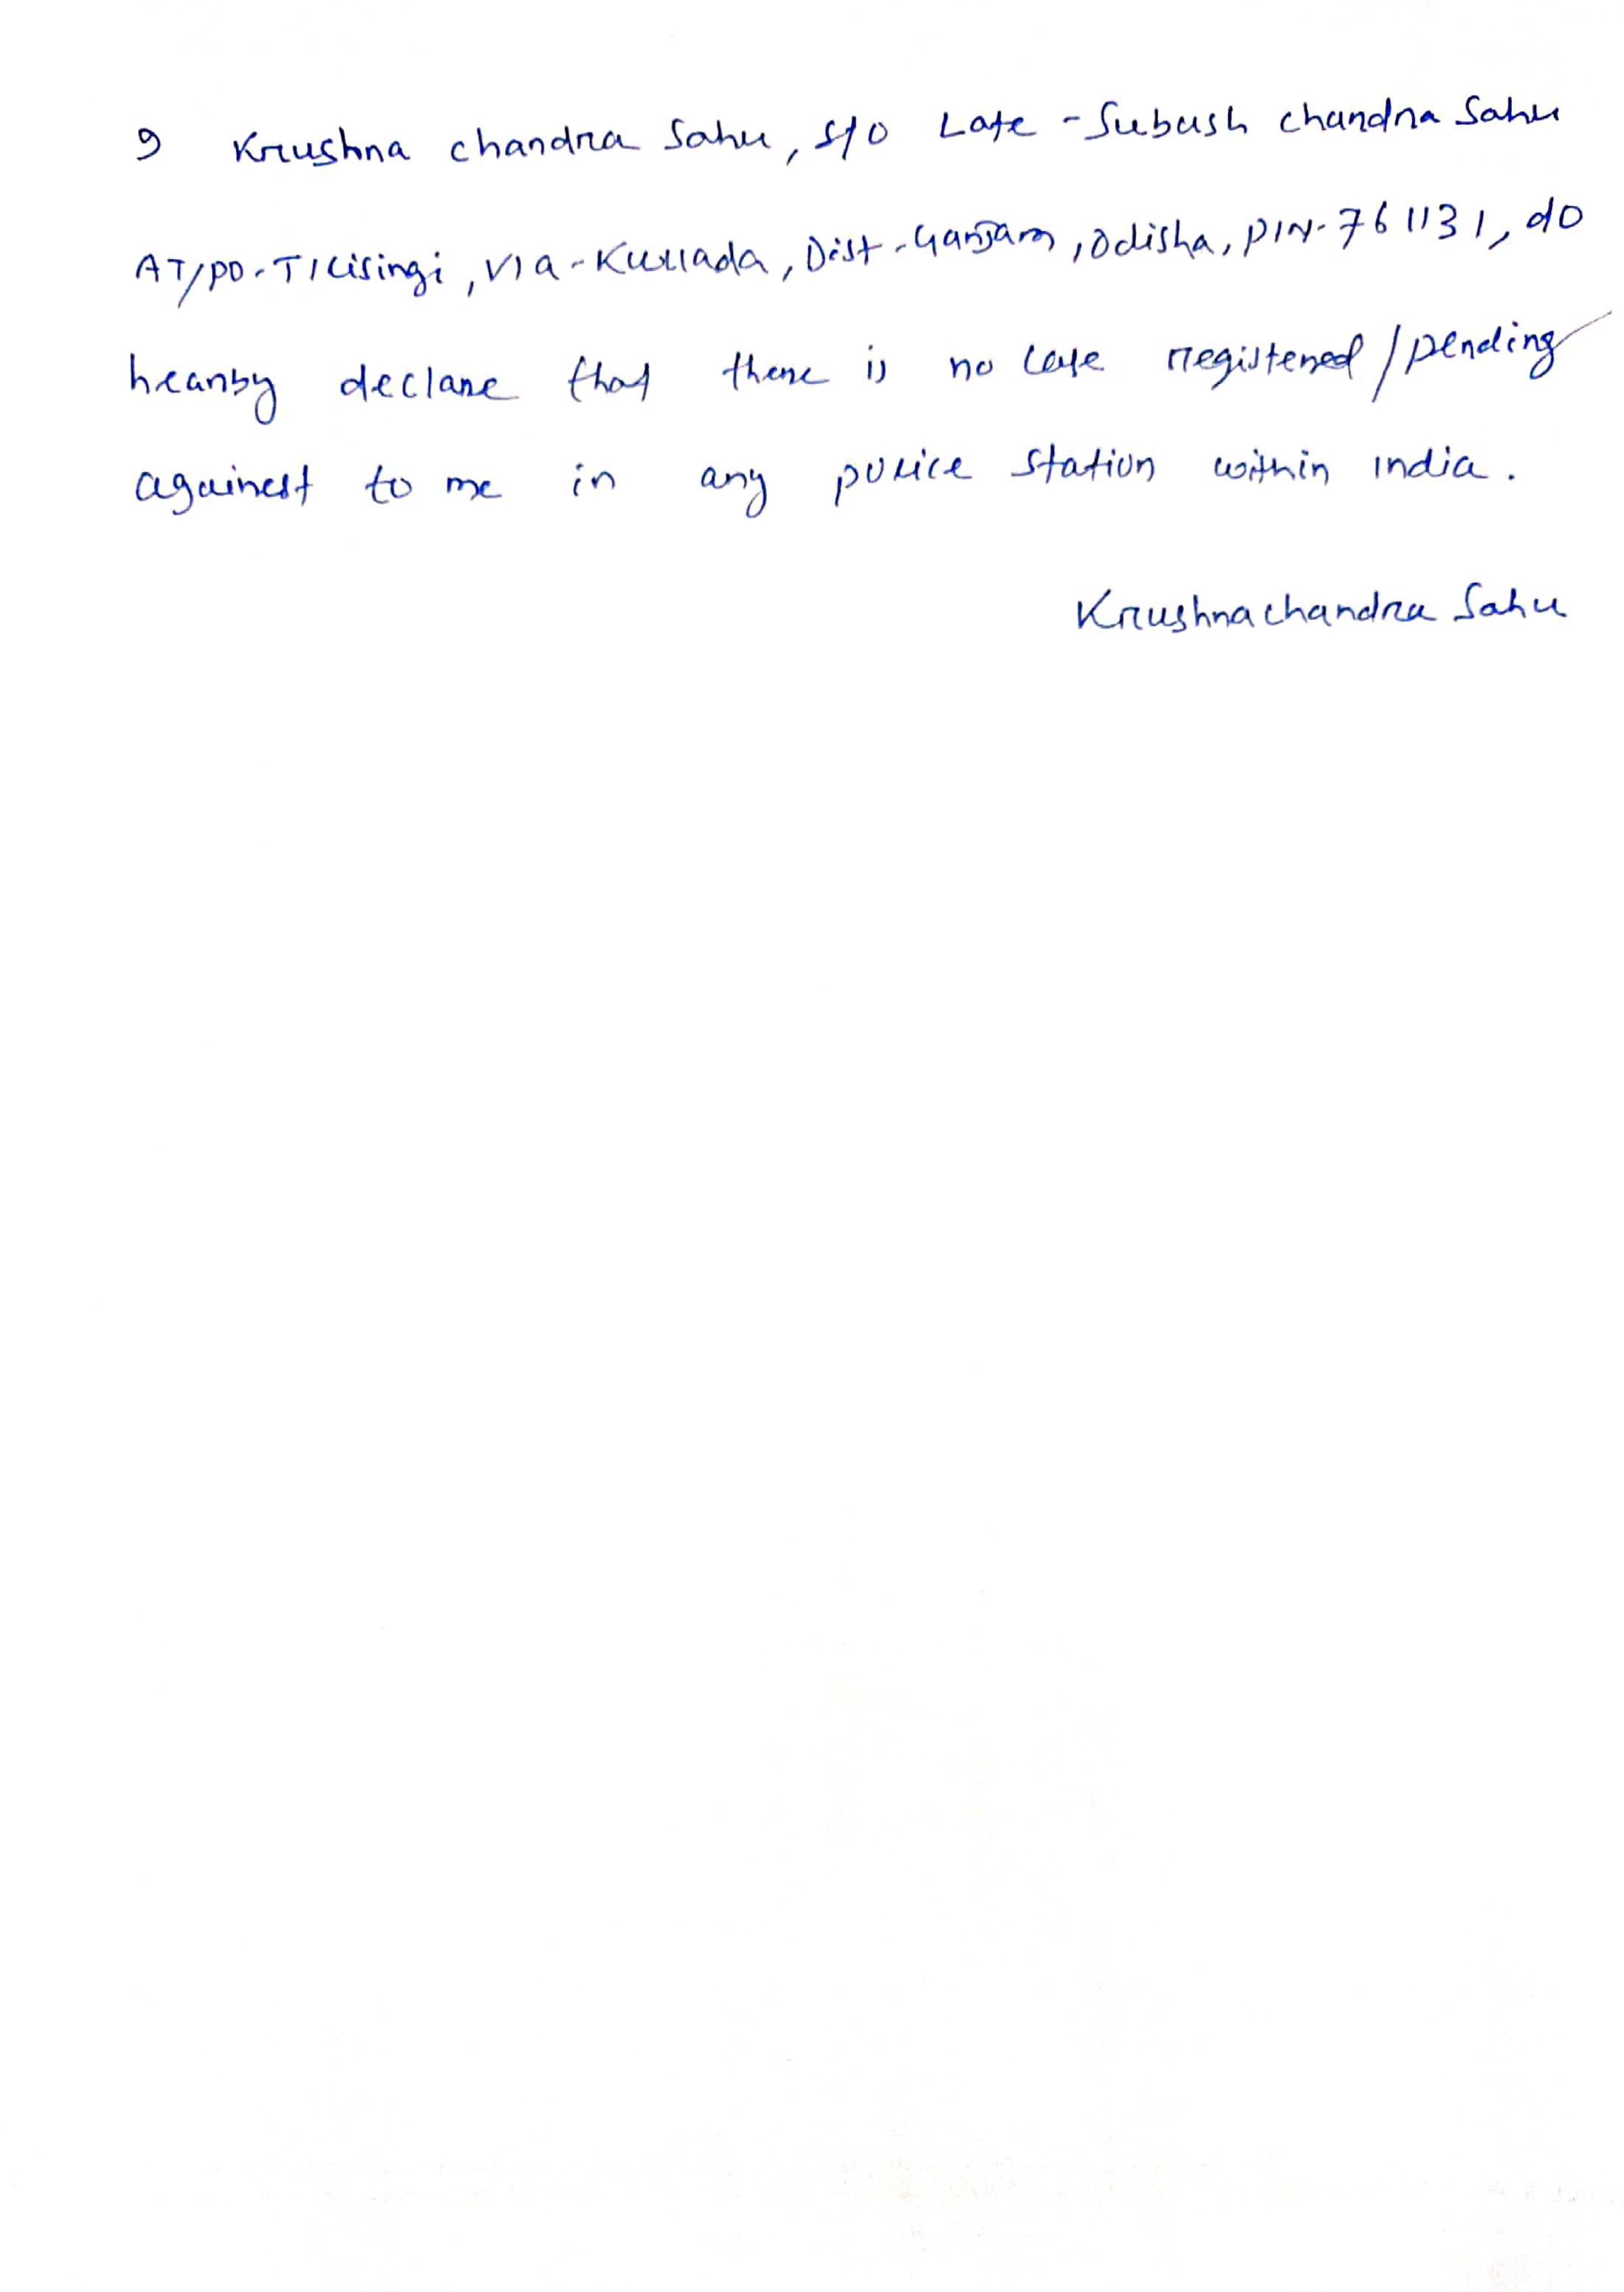 I Krushna chandra Sahu, S/O Late - Subash chandra Sahu
AT/PO-Tilisingi, VIA-Kullada, Dist-Ganjam, Odisha, PIN-761131, do
hearby declare that there is no case registered/pending
againest to me in any police station within india.
Krushna chandra Sahu